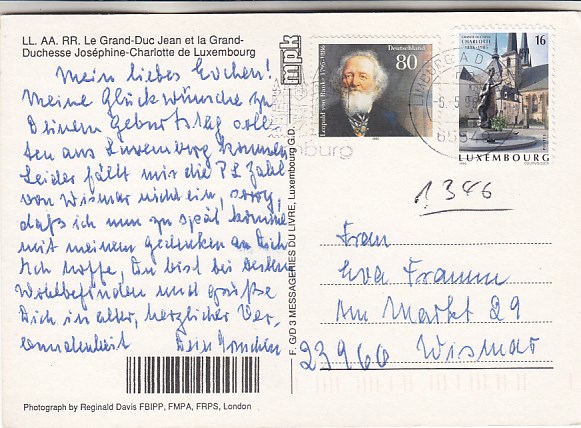 LL. AA. RR. Le Grand-Duc Jean et la Grand-
Duchesse Joséphine-Charlotte de Luxembourg
Mein liebes Evchen!
Meine Glückwünsche zu
Deinem Geburtstag soll-
ten aus Luxemburg kommen
Leider fällt mir die PLZahl
von Wismar nicht ein, sorry,
daß ich nun zu spät komme
mit meinem Gedenken an Dich
Ich hoffe, Du bist bei bestem
Wohlbefinden und grüße
Dich in alter, herzlicher Ver-
bundenheit Dein
Photograph by Reginald Davis FBIPP, FMPA, FRPS, London
mpk
F. G/D 3 MESSAGERIES DU LIVRE, Luxembourg G.D.
Leopold von Ranke 1795-1886
Deutschland
80
LIMBURG A D
-6.-5.98
burg
16
LUXEMBOURG
1,346
Frau
Eva Framm
Am Markt 29
23966 Wismar